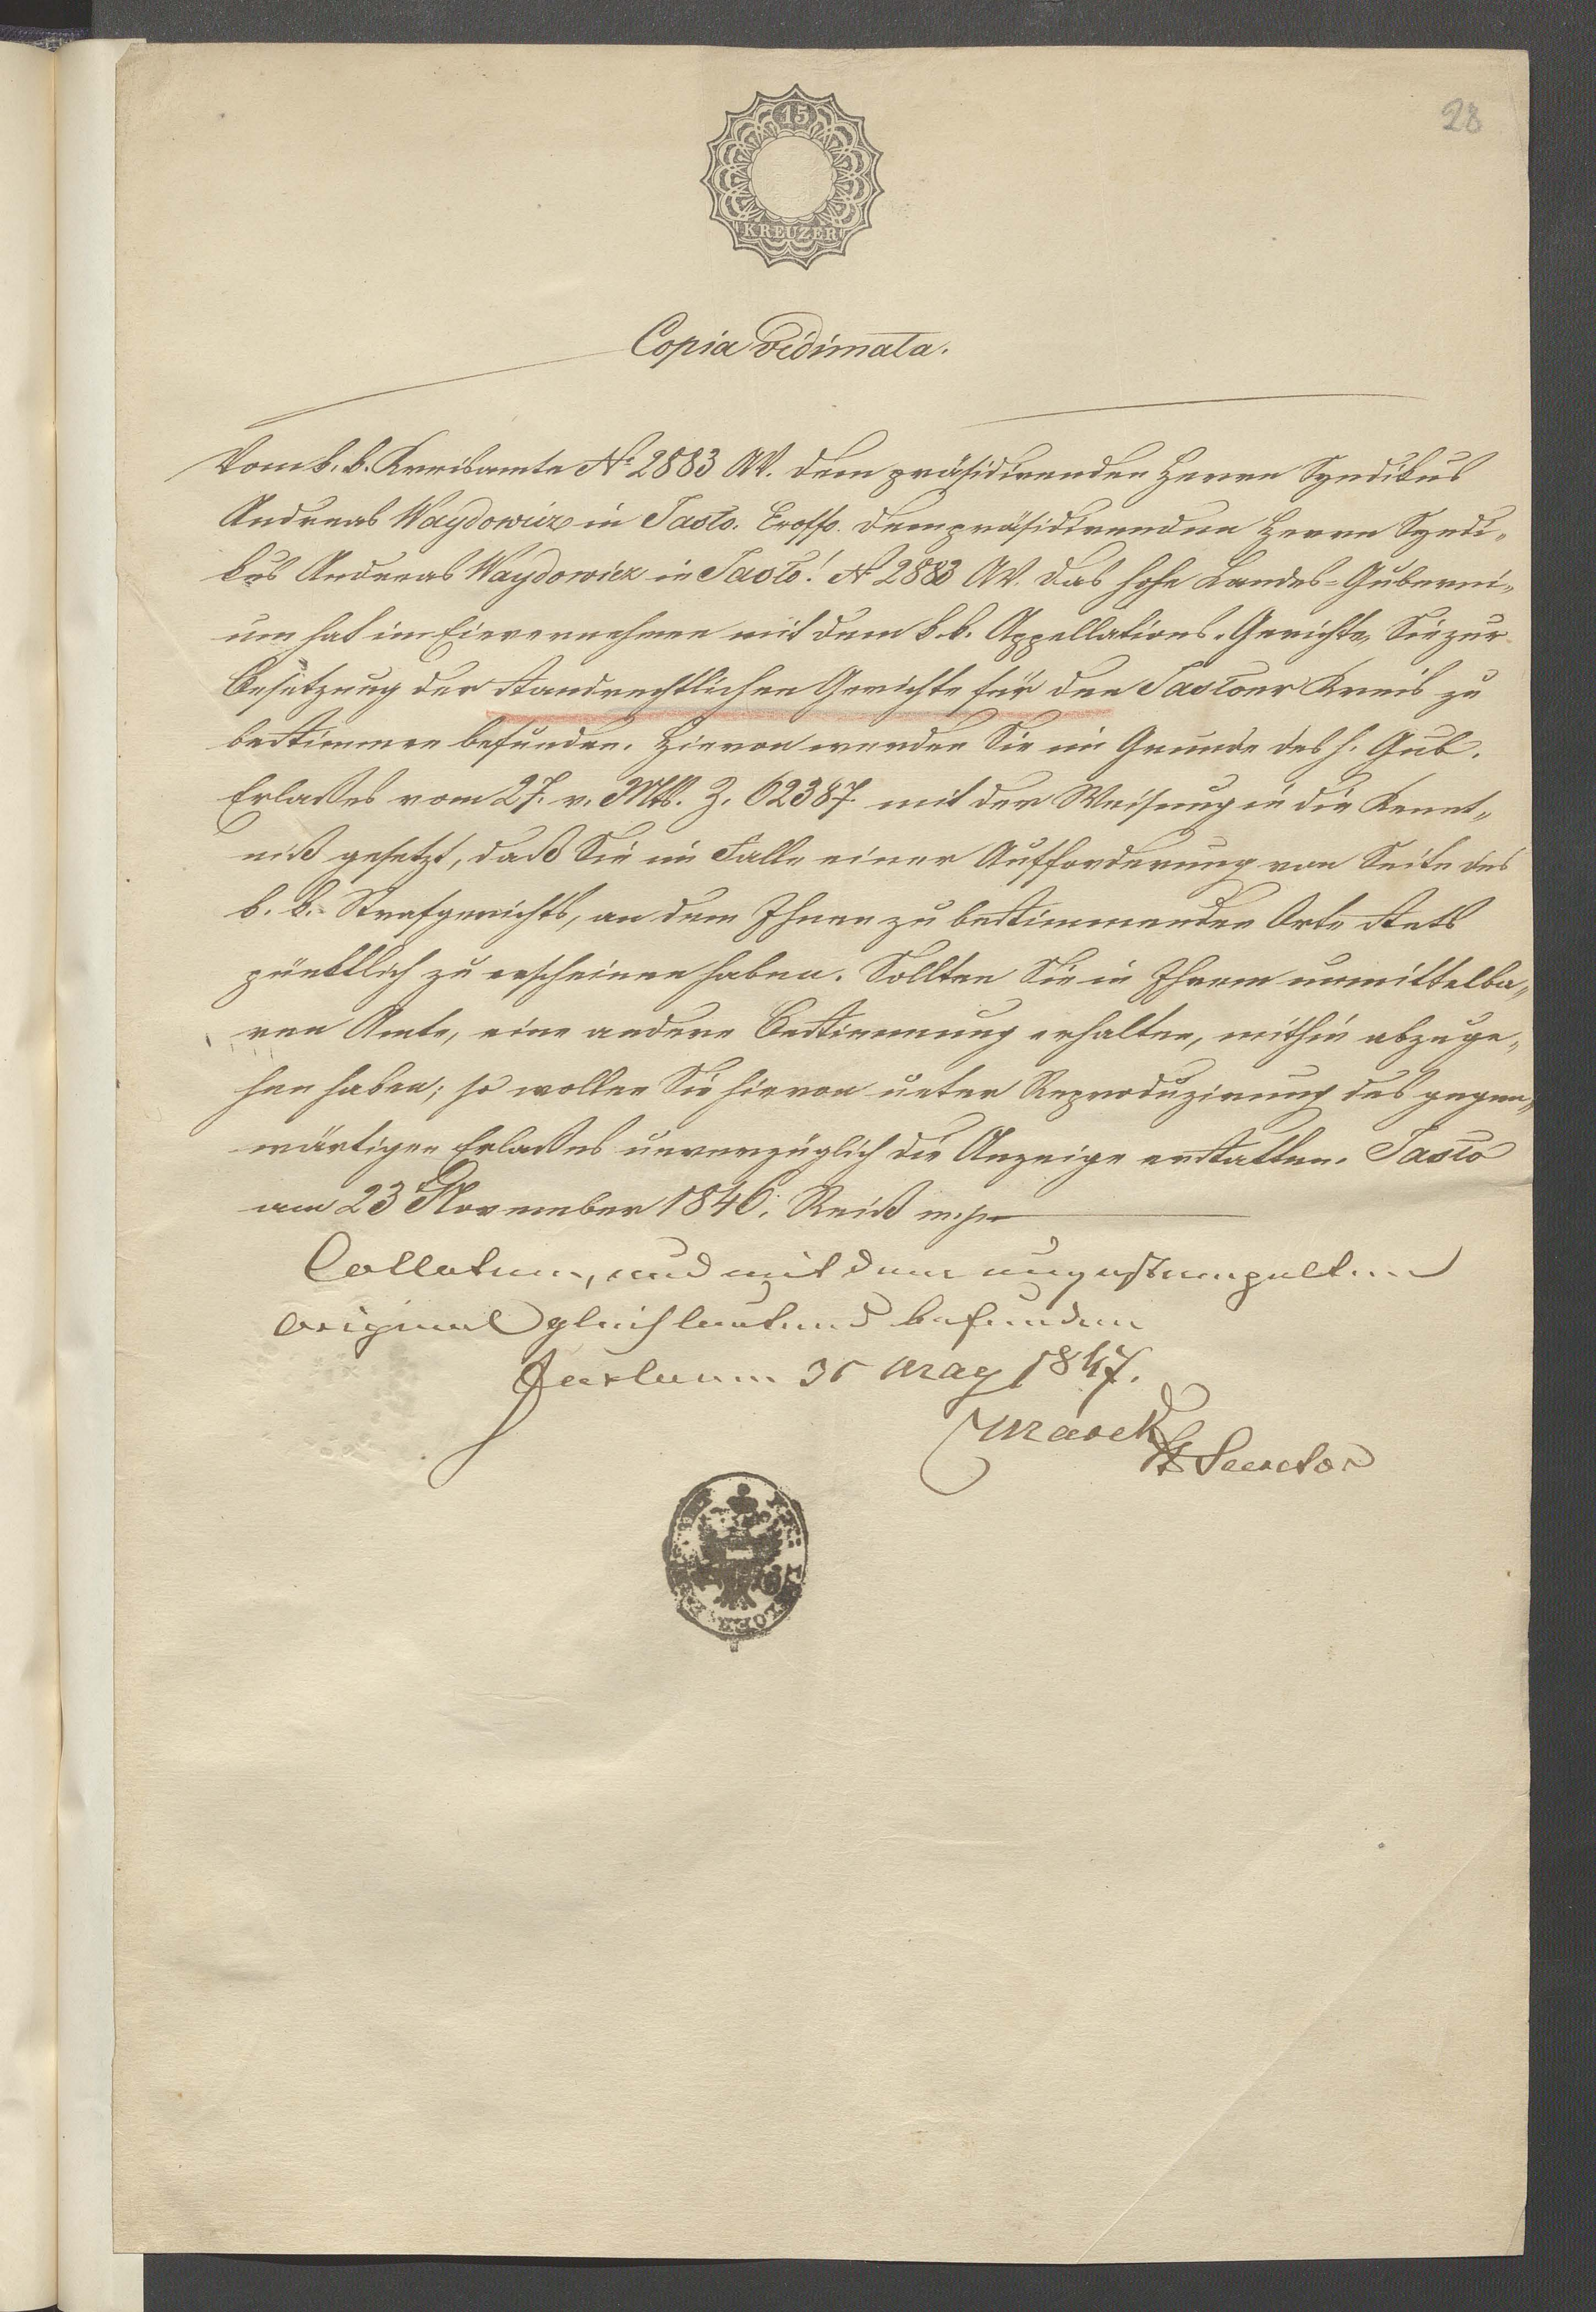 28
15
KREUZER
Copia vidimata.
Vom k. k. Kreisamte No 2883 AV. dem präsidirenden Herrn Syndikus
Andreas Waydowicz in Jasło. Exoffo. Dem präsidirenden Herrn Syndi„
kus Andreas Waydowicz in Jasło! No 2883 AV. Das hohe Landes-Guberni„
um hat im Einvernehmen mit dem k. k. Appellations-Gerichte, Sie zur
Besetzung der standrechtlichen Gerichte für den Jasłoer Kreis zu
bestimmen befunden. Hievon werden Sie im Grunde des h. Gub.
Erlaßes vom 27. v. Mts. Z. 62387. mit der Weisung in die Kennt„
niß gesetzt, daß Sie im Falle einer Aufforderung von Seite des
k. k. Strafgerichts, an dem Ihnen zu bestimmenden Orte stets
pünktlich zu erscheinen haben. Sollten Sie in Ihrem unmittelba„
ren Amte, eine andere Bestimmung erhalten, mithin abzuge„
hen haben; so wollen Sie hievon unter Reproduzirung des gegen„
wärtigen Erlaßes unverzüglich die Anzeige erstatten. Jasło
am 23 November 1846. Reiß m. p.
Collatum, und mit dem ungestempelten
Original gleichlautend befunden
May 1847.